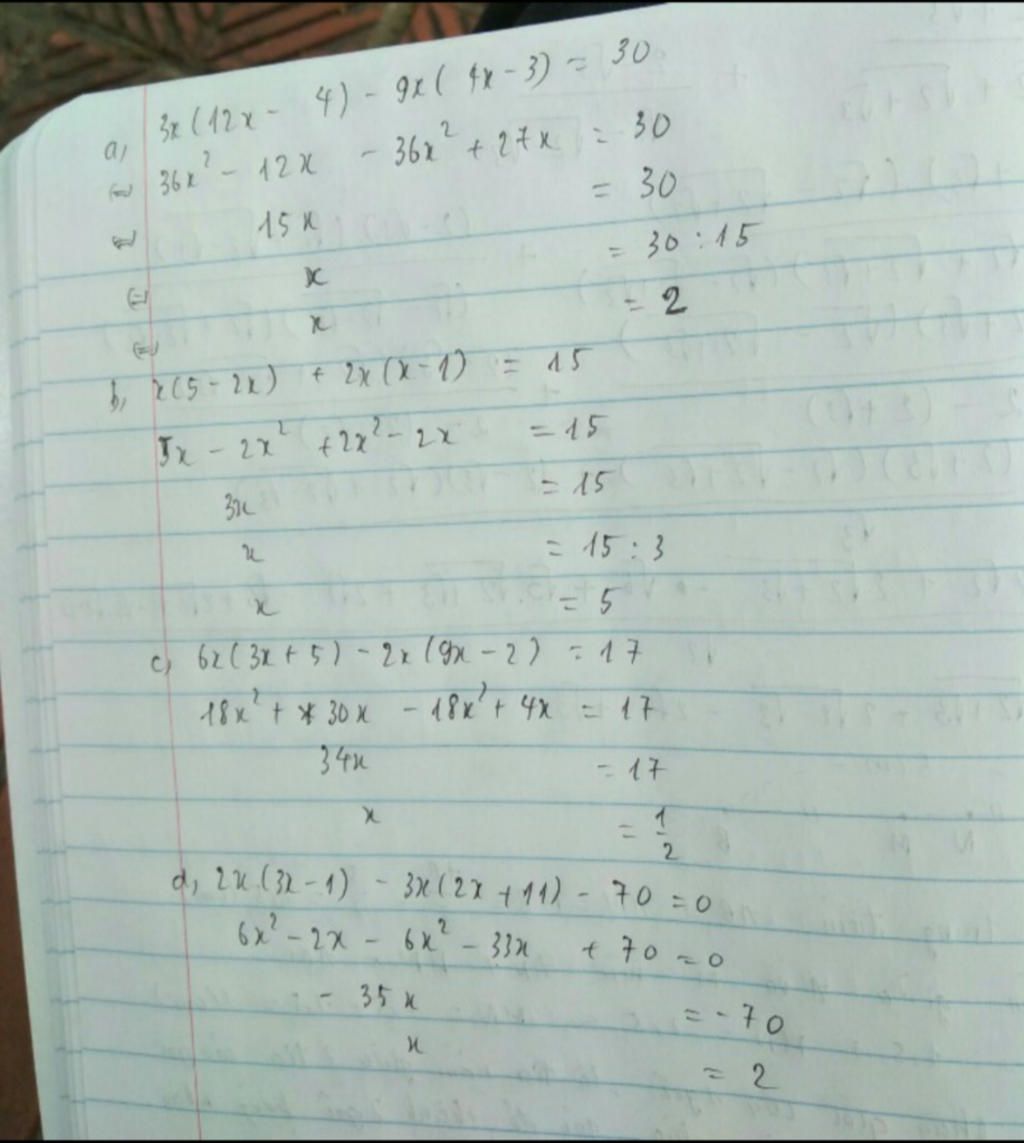 a, 3x(12x - 4) - 9x(4x-3) = 30
(=) 36x² - 12x - 36x² + 27x = 30
(=) 15x = 30
(=) x = 30 : 15
(=) x = 2
b, x(5-2x) + 2x(x-1) = 15
5x - 2x² + 2x² - 2x = 15
3x = 15
x = 15 : 3
x = 5
c, 6x(3x+5) - 2x(9x-2) = 17
18x² + 30x - 18x² + 4x = 17
34x = 17
x = 1/2
d, 2x(3x-1) - 3x(2x+11) - 70 = 0
6x² - 2x - 6x² - 33x + 70 = 0
- 35x = - 70
x = 2